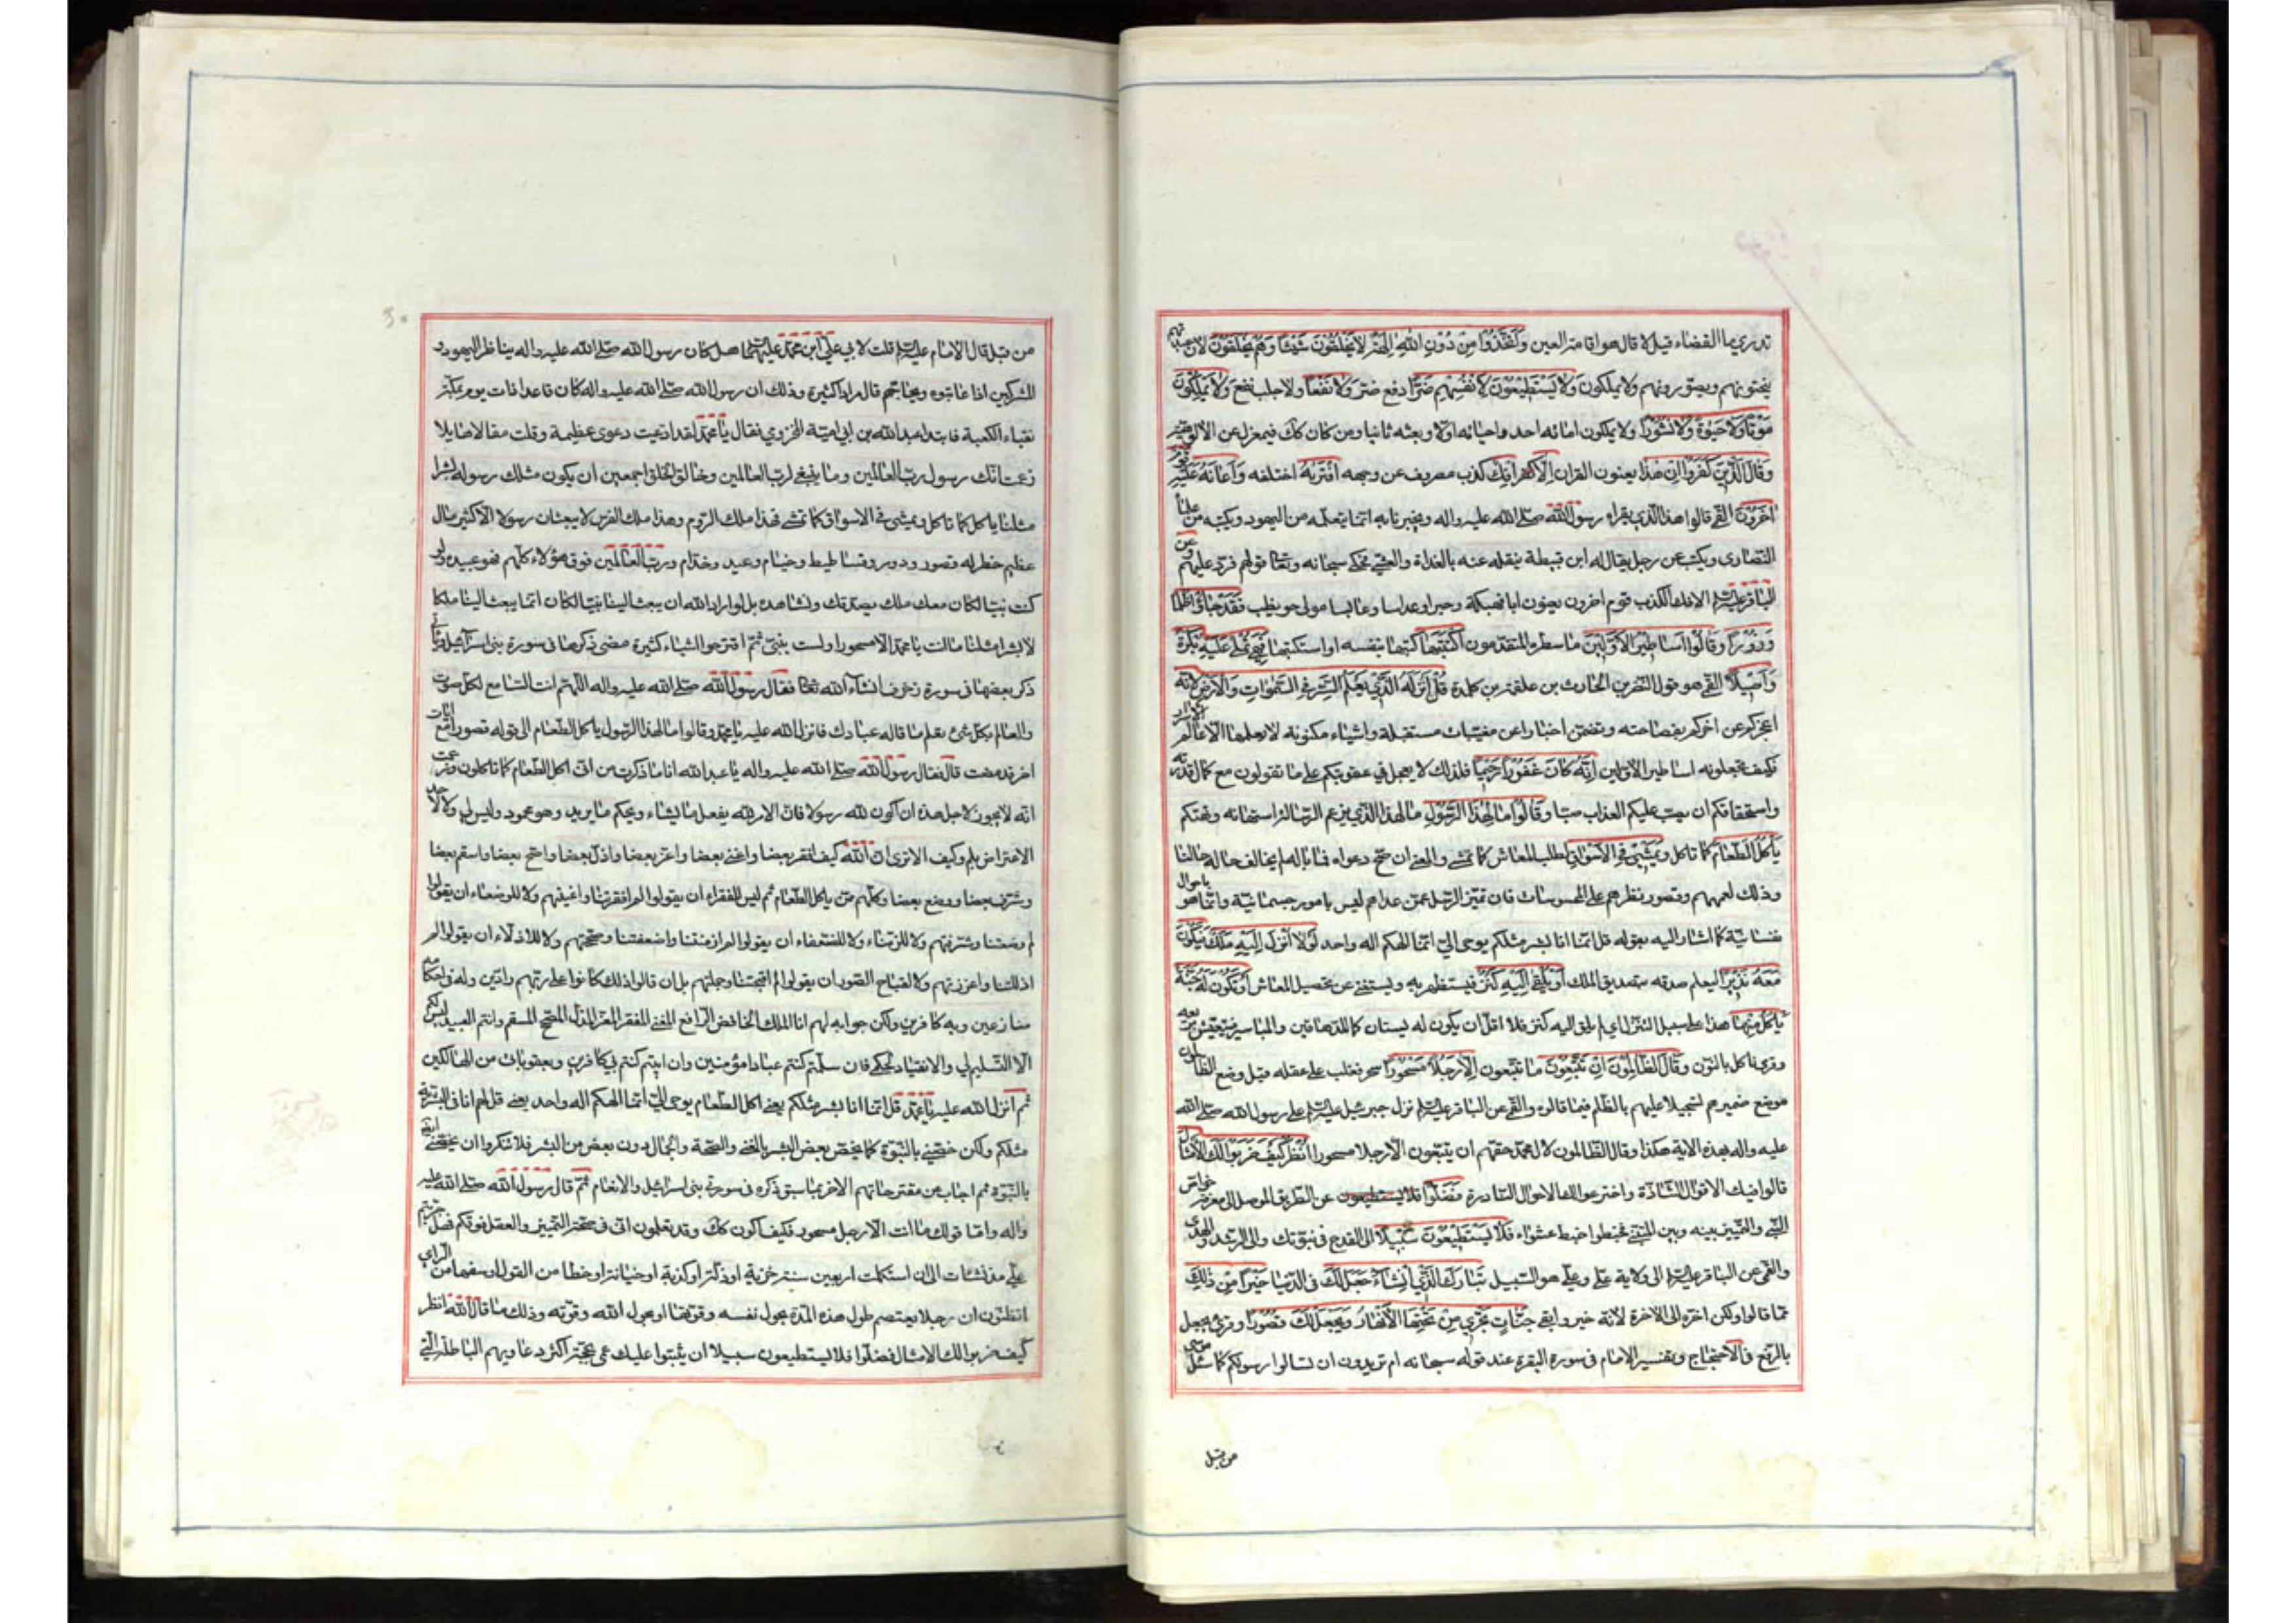 تدري ما القضاء قيل لا قال هو اقامة العين وَاتَّخَذُوا مِنْ دُونِ اللهِ الِهَةً لا يَخْلُقُونَ شَيْئًا وَهُمْ يُخْلَقُونَ لان عبدتهم
ينحتونهم ويصورونهم ولا يملكون وَلا يَسْتَطيعُونَ لِاَنْفُسِهِمْ ضَرًّا دفع ضر وَلا نَفْعًا ولا جلب نفع وَلا يَمْلِكُونَ
مَوْتًا وَلا حَيٰوةً وَلا نُشُورًا ولا يملكون اماتة احد واحيائه اولا وبعثه ثانيا ومن كان كك فبمعزل عن الالوهية
وَقالَ الَّذينَ كَفَرُوا اِنْ هٰذا يعنون القران اِلّا اِفْكٌ كذب مصروف عن وجهه افْتَريهُ اختلقه وَاَعانَهُ عَلَيْهِ قوم
اخَرُونَ القمي قالوا هذا الذي يقراه رسول الله صلى الله عليه واله ويخبرنا به انما يتعلمه من اليهود ويكتبه من علماء
النصارى ويكتب عن رجل يقال له ابن قبيطة ينقله عنه بالغداة والعشي فحكى سبحانه وتعالى قولهم فرد عليهم وعن
الباقر عليه السلم الافك الكذب قوم اخرون يعنون ابا فهيكة وحبرا وعداسا وعابسا مولى حويطب فَقَدْ جاؤُا ظُلْمًا
وَزُورًا وَقالُوا اَساطيرُ الاَوَّلينَ ما سطره المتقدمون اكْتَتَبَها كتبها بنفسه او استكتبها فَهِيَ تُمْلى عَلَيْهِ بُكْرَةً
وَاَصيلًا القمي هو قول النضر بن الحارث بن علقمة بن كلدة قُلْ اَنْزَلَهُ الَّذي يَعْلَمُ السِّرَّ فِي السَّمٰوَاتِ وَالاَرْضِ لانه
اعجزكم عن اخركم بفصاحته وتضمن اخبارا عن مغيبات مستقبلة واشياء مكنونة لا يعلمها الا عالم الاسرار
فكيف تجعلونه اساطير الاولين اِنَّهُ كانَ غَفُورًا رَحيمًا فلذلك لا يعجل في عقوبتكم على ما تقولون مع كمال قدرته
واستحقاقكم ان يصب عليكم العذاب صبا وَقالُوا ما لِهٰذَا الرَّسُولِ ما لهذا الذي يزعم الرسالة استهانه وتهكم
يَاْكُلُ الطَّعامَ كما تاكل وَيَمْشي فِي الاَسْواقِ لطلب المعاش كما نمشي والمعنى ان صح دعواه فما باله لم يخالف حاله حالنا
وذلك لعمههم وقصور نظرهم على المحسوسات فان تميز الرسل عمن عداهم ليس بامور جسمانية وانما هو باحوال
نفسانية كما اشار اليه بقوله قل انما انا بشر مثلكم يوحى الي انما الهكم اله واحد لَوْلا اُنْزِلَ اِلَيْهِ مَلَكٌ فَيَكُونَ
مَعَهُ نَذيرًا ليعلم صدقه بتصديق الملك اَوْ يُلْقى اِلَيْهِ كَنْزٌ فيستظهر به ويستغني عن تحصيل المعاش اَوْ تَكُونُ لَهُ جَنَّةٌ
يَاْكُلُ مِنْها هذا على سبيل التنزل اي لم يلق اليه كنز فلا اقل ان يكون له بستان كما للدهاقين والمياسير فيتعيش بريعه
وقرئ ناكل بالنون وَقالَ الظّالِمُونَ اِنْ تَتَّبِعُونَ ما تتبعون اِلّا رَجُلًا مَسْحُورًا سحر فغلب على عقله قيل وضع الظالمون
موضع ضميرهم تسجيلا عليهم بالظلم فيما قالوه والقمي عن الباقر عليه السلم نزل جبرئيل عليه السلم على رسول الله صلى الله
عليه واله بهذه الاية هكذا وقال الظالمون لال محمد حقهم ان يتبعون الا رجلا مسحورا اُنْظُرْ كَيْفَ ضَرَبُوا لَكَ الاَمْثالَ
قالوا فيك الاقوال الشاذة واخترعوا لك الاحوال النادرة فَضَلُّوا فلا يستطيعون عن الطريق الموصل الى معرفة خواص
النبي والتمييز بينه وبين المتنبي فخبطوا خبط عشواء فَلا يَسْتَطيعُونَ سَبيلًا الى القدح في نبوتك والى الرشد والهدى
والقمي عن الباقر عليه السلم الى ولاية علي وعلي هو السبيل تَبارَكَ الَّذي اِنْ شاءَ جَعَلَ لَكَ في الدنيا خَيْرًا مِنْ ذٰلِكَ
مما قالوا ولكن اخره الى الاخرة لانه خير وابقى جَنّاتٍ تَجْري مِنْ تَحْتِهَا الاَنْهارُ وَيَجْعَلْ لَكَ قُصُورًا وقرئ يجعل
بالرفع في الاحتجاج وتفسير الامام في سورة البقرة عند قوله سبحانه ام تريدون ان تسالوا رسولكم كما سئل موسى
من قبل
من قبل قال الامام عليه السلم قلت لابي علي ابن محمد عليهما السلم هل كان رسول الله صلى الله عليه واله يناظر اليهود و
المشركين اذا عاتبوه ويحاجهم قال مرارا كثيرة وذلك ان رسول الله صلى الله عليه واله كان قاعدا ذات يوم بمكة
بفناء الكعبة فابتدا عبد الله بن ابي امية المخزومي فقال يا محمد لقد ادعيت دعوى عظيمة وقلت مقالا هايلا
زعمت انك رسول رب العالمين وما ينبغي لرب العالمين وخالق الخلق اجمعين ان يكون مثلك رسوله بشرا
مثلنا ياكل كما تاكل ويمشي في الاسواق كما نمشي فهذا ملك الروم وهذا ملك الفرس لا يبعثان رسولا الا كثير مال
عظيم خطر له قصور ودور وفساطيط وخيام وعبيد وخدام ورب العالمين فوق هؤلاء كلهم فهو عبيده ولو
كنت نبيا لكان معك ملك يصدقك ونشاهده بل لو اراد الله ان يبعث الينا نبيا لكان انما يبعث الينا ملكا
لا بشرا مثلنا ما انت يا محمد الا مسحورا ولست بنبي ثم اقترحوا اشياء كثيرة مضى ذكرها في سورة بني اسرائيل وياتي
ذكر بعضها في سورة زخرف انشاء الله تعالى فقال رسول الله صلى الله عليه واله اللهم انت السامع لكل صوت
والعالم بكل شئ تعلم ما قاله عبادك فانزل الله عليه يا محمد وقالوا ما لهذا الرسول ياكل الطعام الى قوله قصورا مع ايات
اخر قد مضت قال فقال رسول الله صلى الله عليه واله يا عبد الله اما ما ذكرت من اني اكل الطعام كما تاكلون وزعمت
انه لا يجوز لاجل هذه ان اكون لله رسولا فان الامر لله يفعل ما يشاء ويحكم ما يريد وهو محمود وليس لي ولا لاحد
الاعتراض بلم وكيف الا ترى ان الله كيف افقر بعضا واغنى بعضا واعز بعضا واذل بعضا واصح بعضا واسقم بعضا
وشرف بعضا ووضع بعضا وكلهم ممن ياكل الطعام ثم ليس للفقراء ان يقولوا لم افقرتنا واغنيتهم ولا للوضعاء ان يقولوا
لم وضعتنا وشرفتهم ولا للزمناء ولا للضعفاء ان يقولوا لم ازمنتنا واضعفتنا وصححتهم ولا للاذلاء ان يقولوا لم
اذللتنا واعززتهم ولا لقباح الصور ان يقولوا لم اقبحتنا وجملتهم بل ان قالوا ذلك كانوا على ربهم رادين وله في احكامه
منازعين وبه كافرين ولكن جوابه لهم انا الملك الخافض الرافع المغني المفقر المعز المذل المصحح المسقم وانتم العبيد ليس لكم
الا التسليم لي والانقياد لحكمي فان سلمتم كنتم عبادا مؤمنين وان ابيتم كنتم بي كافرين وبعقوباتي من الهالكين
ثم انزل الله عليه يا محمد قل انما انا بشر مثلكم يعني اكل الطعام يوحى الي انما الهكم اله واحد يعني قل لهم انا في البشرية
مثلكم ولكن خصني بالنبوة كما يخص بعض البشر بالغنى والصحة والجمال دون بعض من البشر فلا تنكروا ان يخصني ايضا
بالنبوة ثم اجاب عن مقترحاتهم الاخر بما سبق ذكره في سورة بني اسرائيل والانعام ثم قال رسول الله صلى الله عليه
واله واما قولك ما انت الا رجل مسحور فكيف اكون كك وقد تعلمون اني في صحة التمييز والعقل فوقكم فهل جربتم
علي مذ نشات الى ان استكملت اربعين سنة خزية او ذلة او كذبة او خيانة او خطا من القول او سفها من الراي
اتظنون ان رجلا يعتصم طول هذه المدة بحول نفسه وقوتها او بحول الله وقوته وذلك ما قال الله انظر
كيف ضربوا لك الامثال فضلوا فلا يستطيعون سبيلا ان يثبتوا عليك عمى بحجة اكثر دعاويهم الباطلة التي